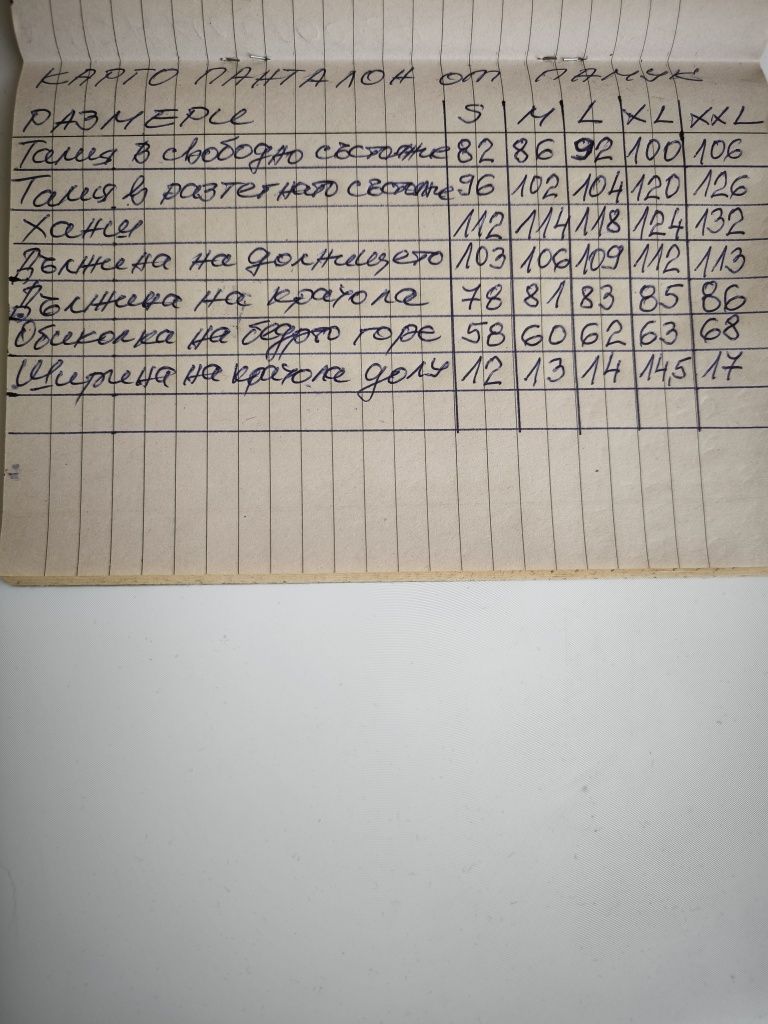 КАРГО ПАНТАЛОН от ПАМУК
РАЗМЕРИ S M L XL XXL
Талия в свободно състояние 82 86 92 100 106
Талия в разтегнато състояние 96 102 104 120 126
Ханш 112 114 118 124 132
Дължина на долнището 103 106 109 112 113
Дължина на крачола 78 81 83 85 86
Обиколка на бедрото горе 58 60 62 63 68
Ширина на крачола долу 12 13 14 14,5 17